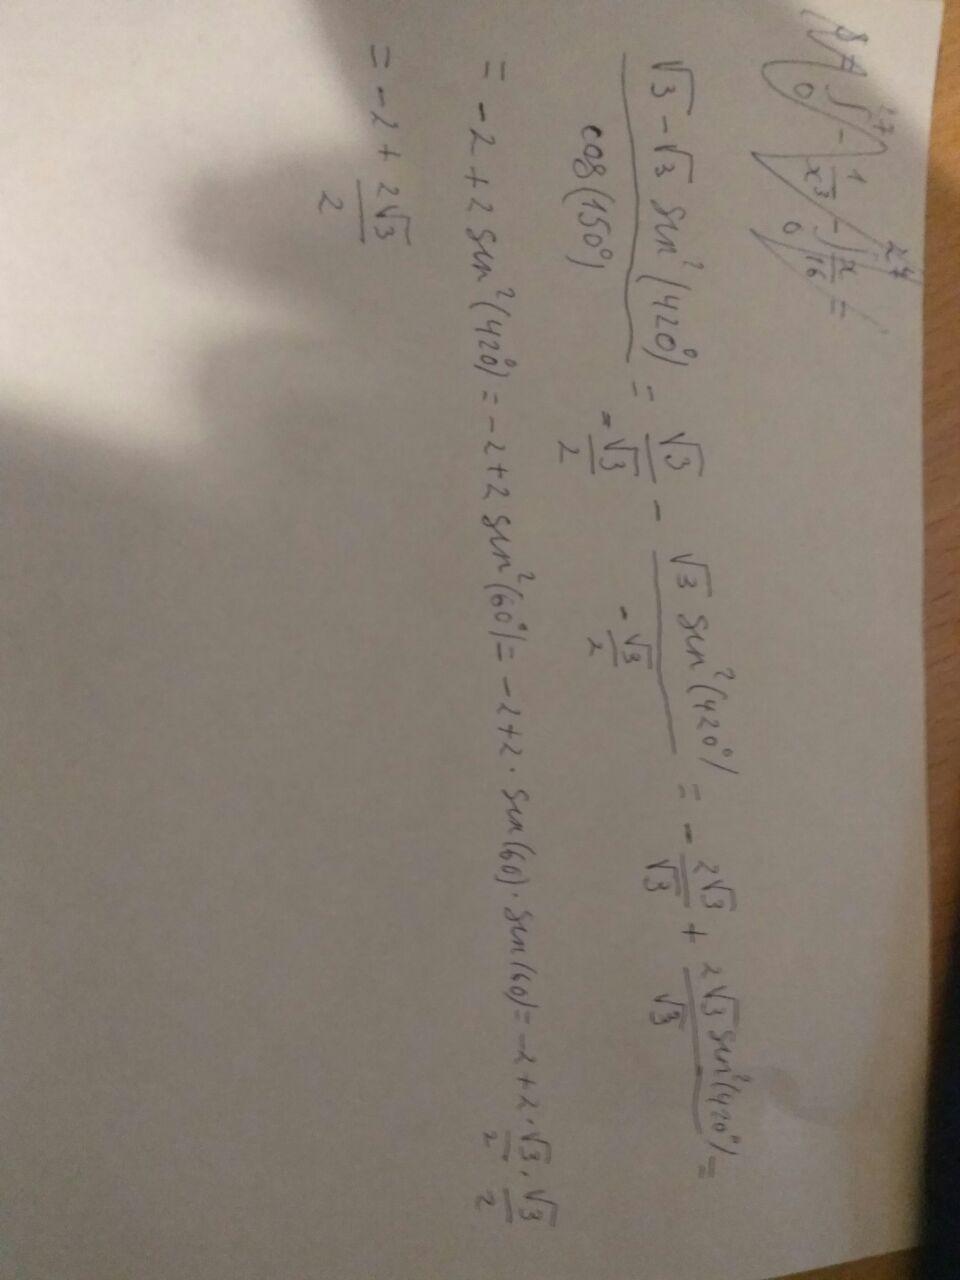 √3 - √3 sin²(420°) / cos(150°) = √3 / -√3/2 - √3 sin²(420°) / -√3/2 = - 2√3/√3 + 2√3 sin²(420°)/√3 =
= -2 + 2 sin²(420°) = -2 + 2 sin²(60°) = -2 + 2 · sin(60) · sin(60) = -2 + 2 · √3/2 · √3/2
= -2 + 2√3/2